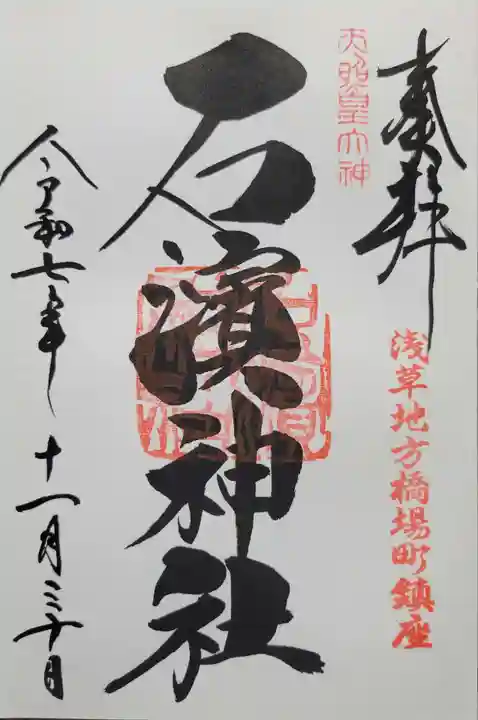 奉拝
天照皇大神
浅草地方橋場町鎮座
石濱神社
令和七年十一月三十日